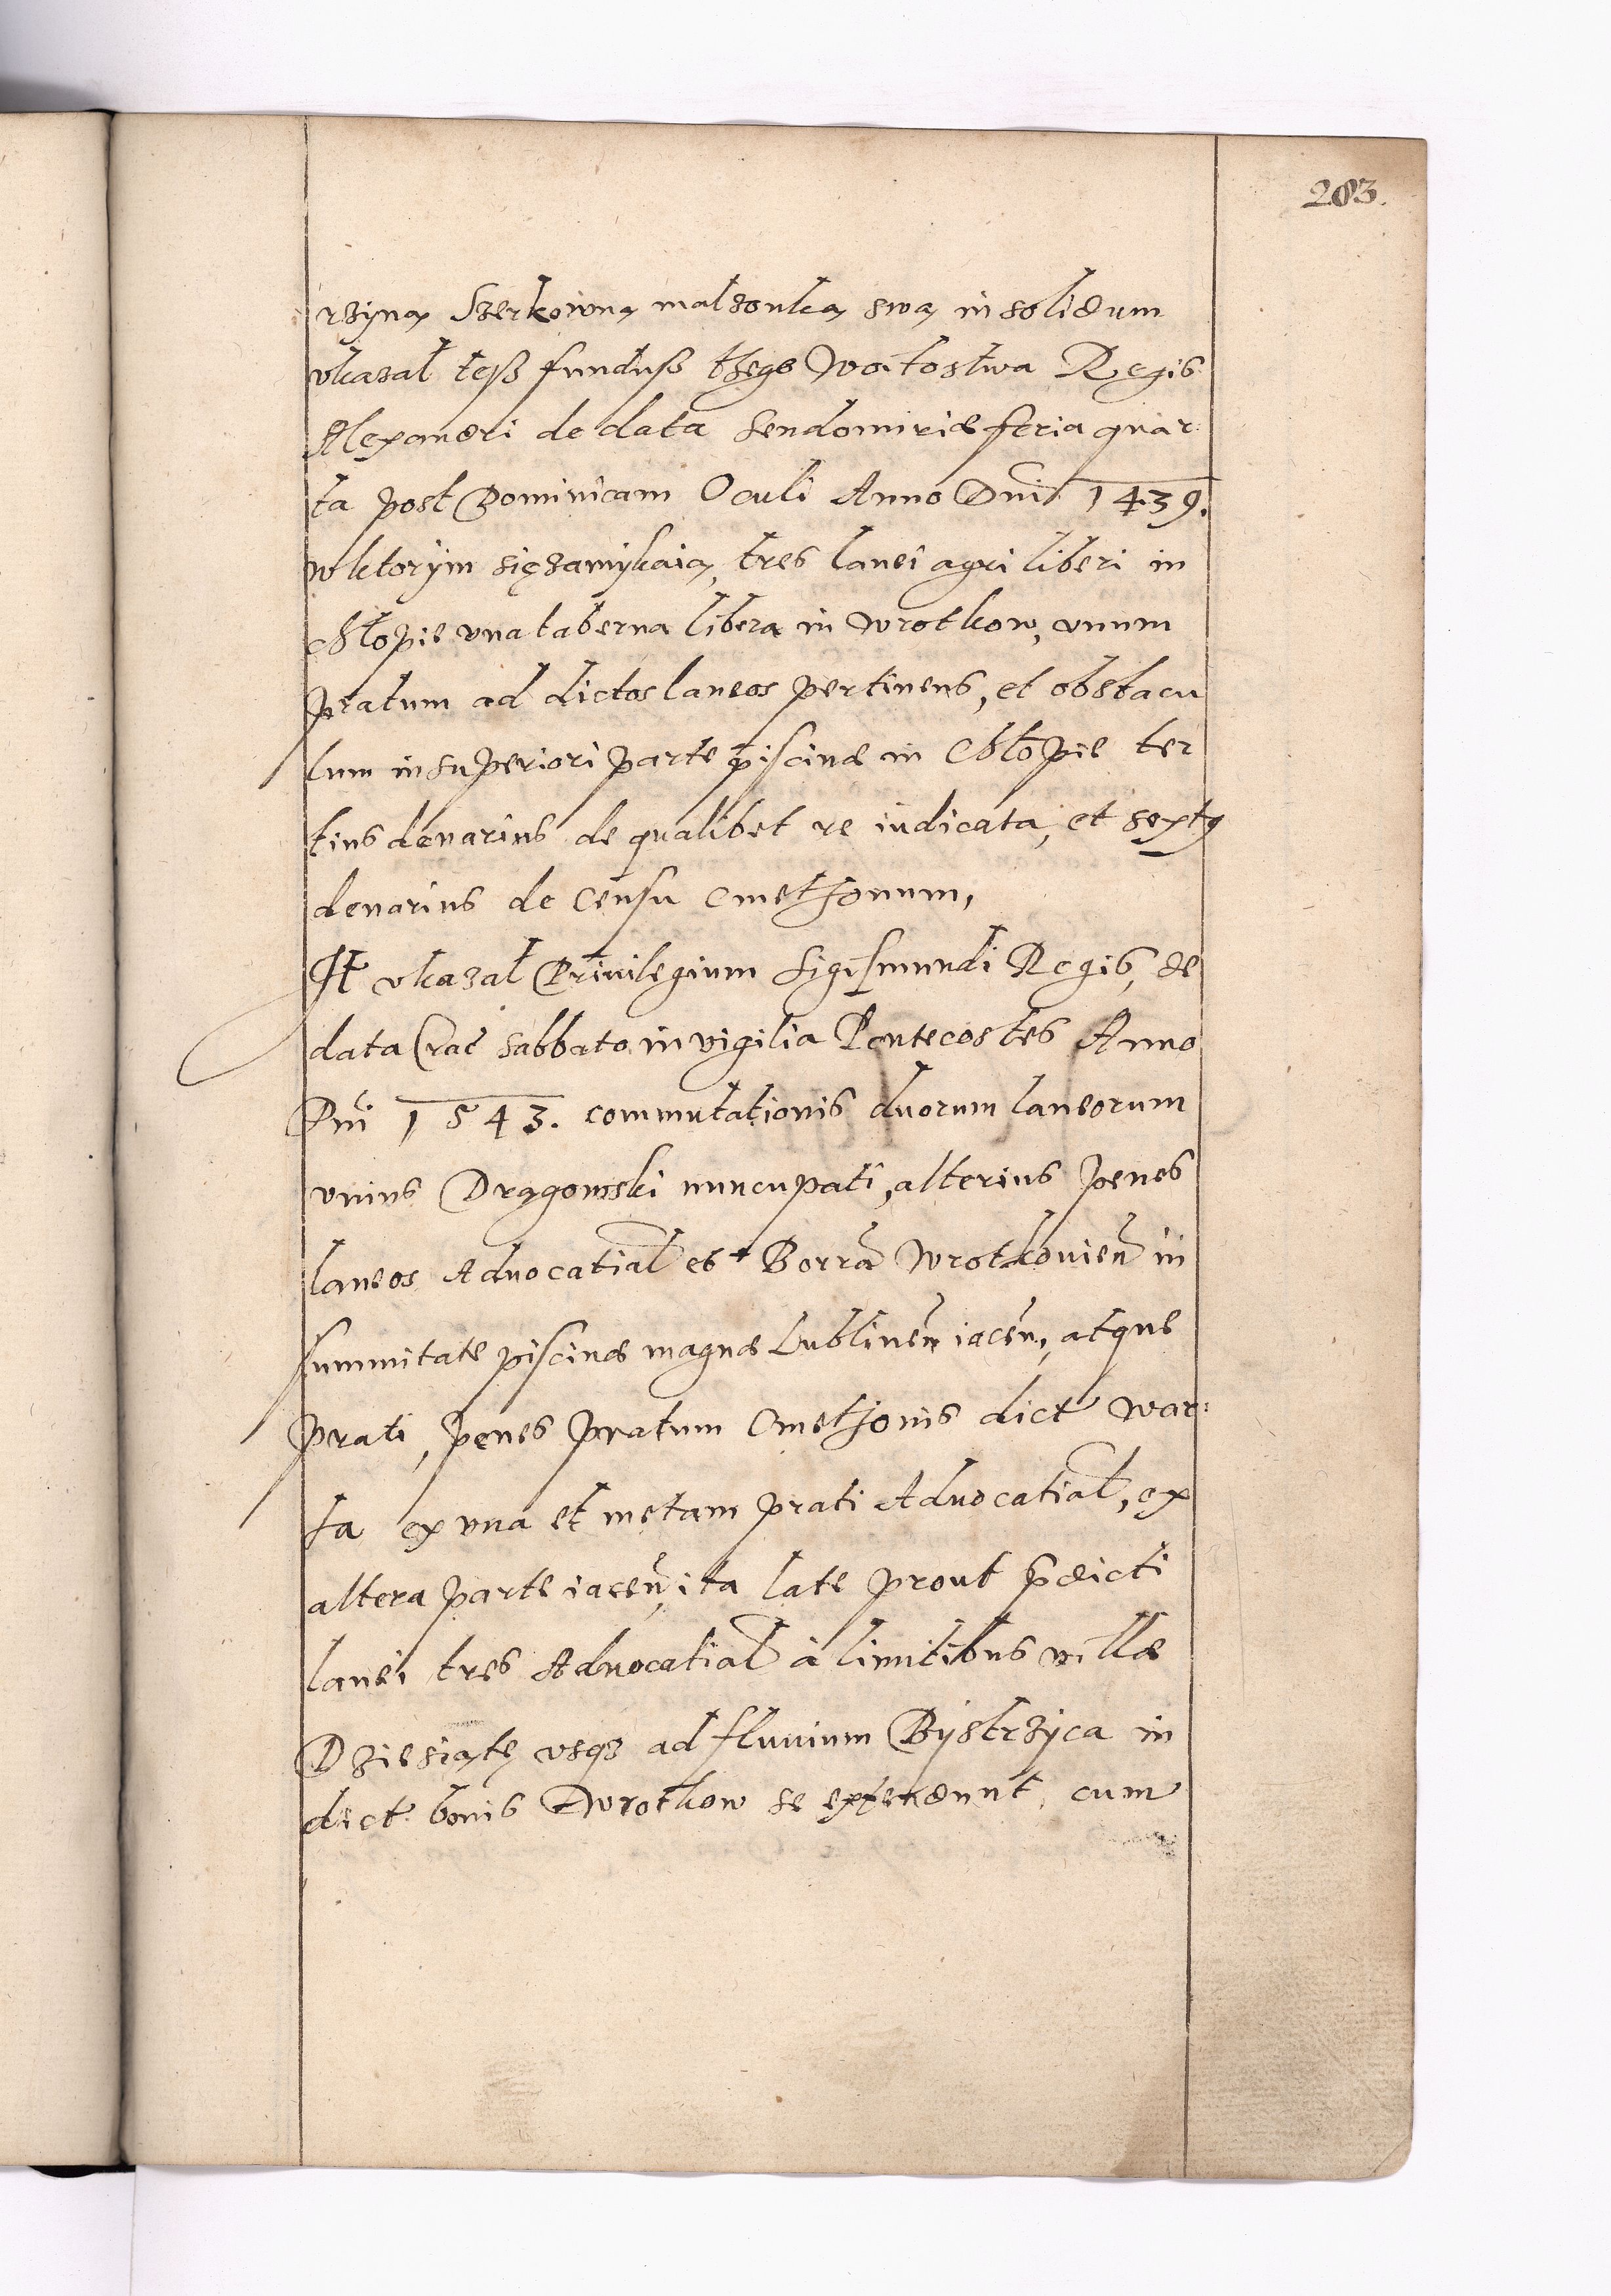 283.
rzyną Szerkowną malzonką swą in solidum
vkazał teyß funduß thego Woitostwa Regis
Alexandri de data Sendomiriæ feria quar:
ta post Dominicam Oculi Anno Dni 1439.
wktorym się zamykaią, tres lanei agri liberi in
Chłopie vna taberna libera in Wrotkow, vnum
pratum ad dictos laneos pertinens, et obstacu
lum in superiori parte piscinæ in Chłopie ter
tius denarius de qualibet re iudicata, et sextꝰ
denarius de censu Cmethonum,
It vkazał Priuilegium Sigismundi Regis, de
data Crac sabbato in vigilia Pentecostes Anno
Dni 1543. commutationis duorum laneorum
vnius Drągowski nuncupati, alterius penes
laneos Aduocatiales Borrā Wrotkouieñ in
summitate piscinæ magnæ Lublineñ iaceñ, atque
prati, penes pratum Cmethonis dict War:
ta ex vna et metam prati Aduocatial, ex
altera parte iaceñ, ita late prout p̄dicti
lanei tres Aduocatial à limitibus villæ
Dziesiąte vsqꝫ ad fluuium Bystrzyca in
dict bonis Wrotkow se extendunt, cum